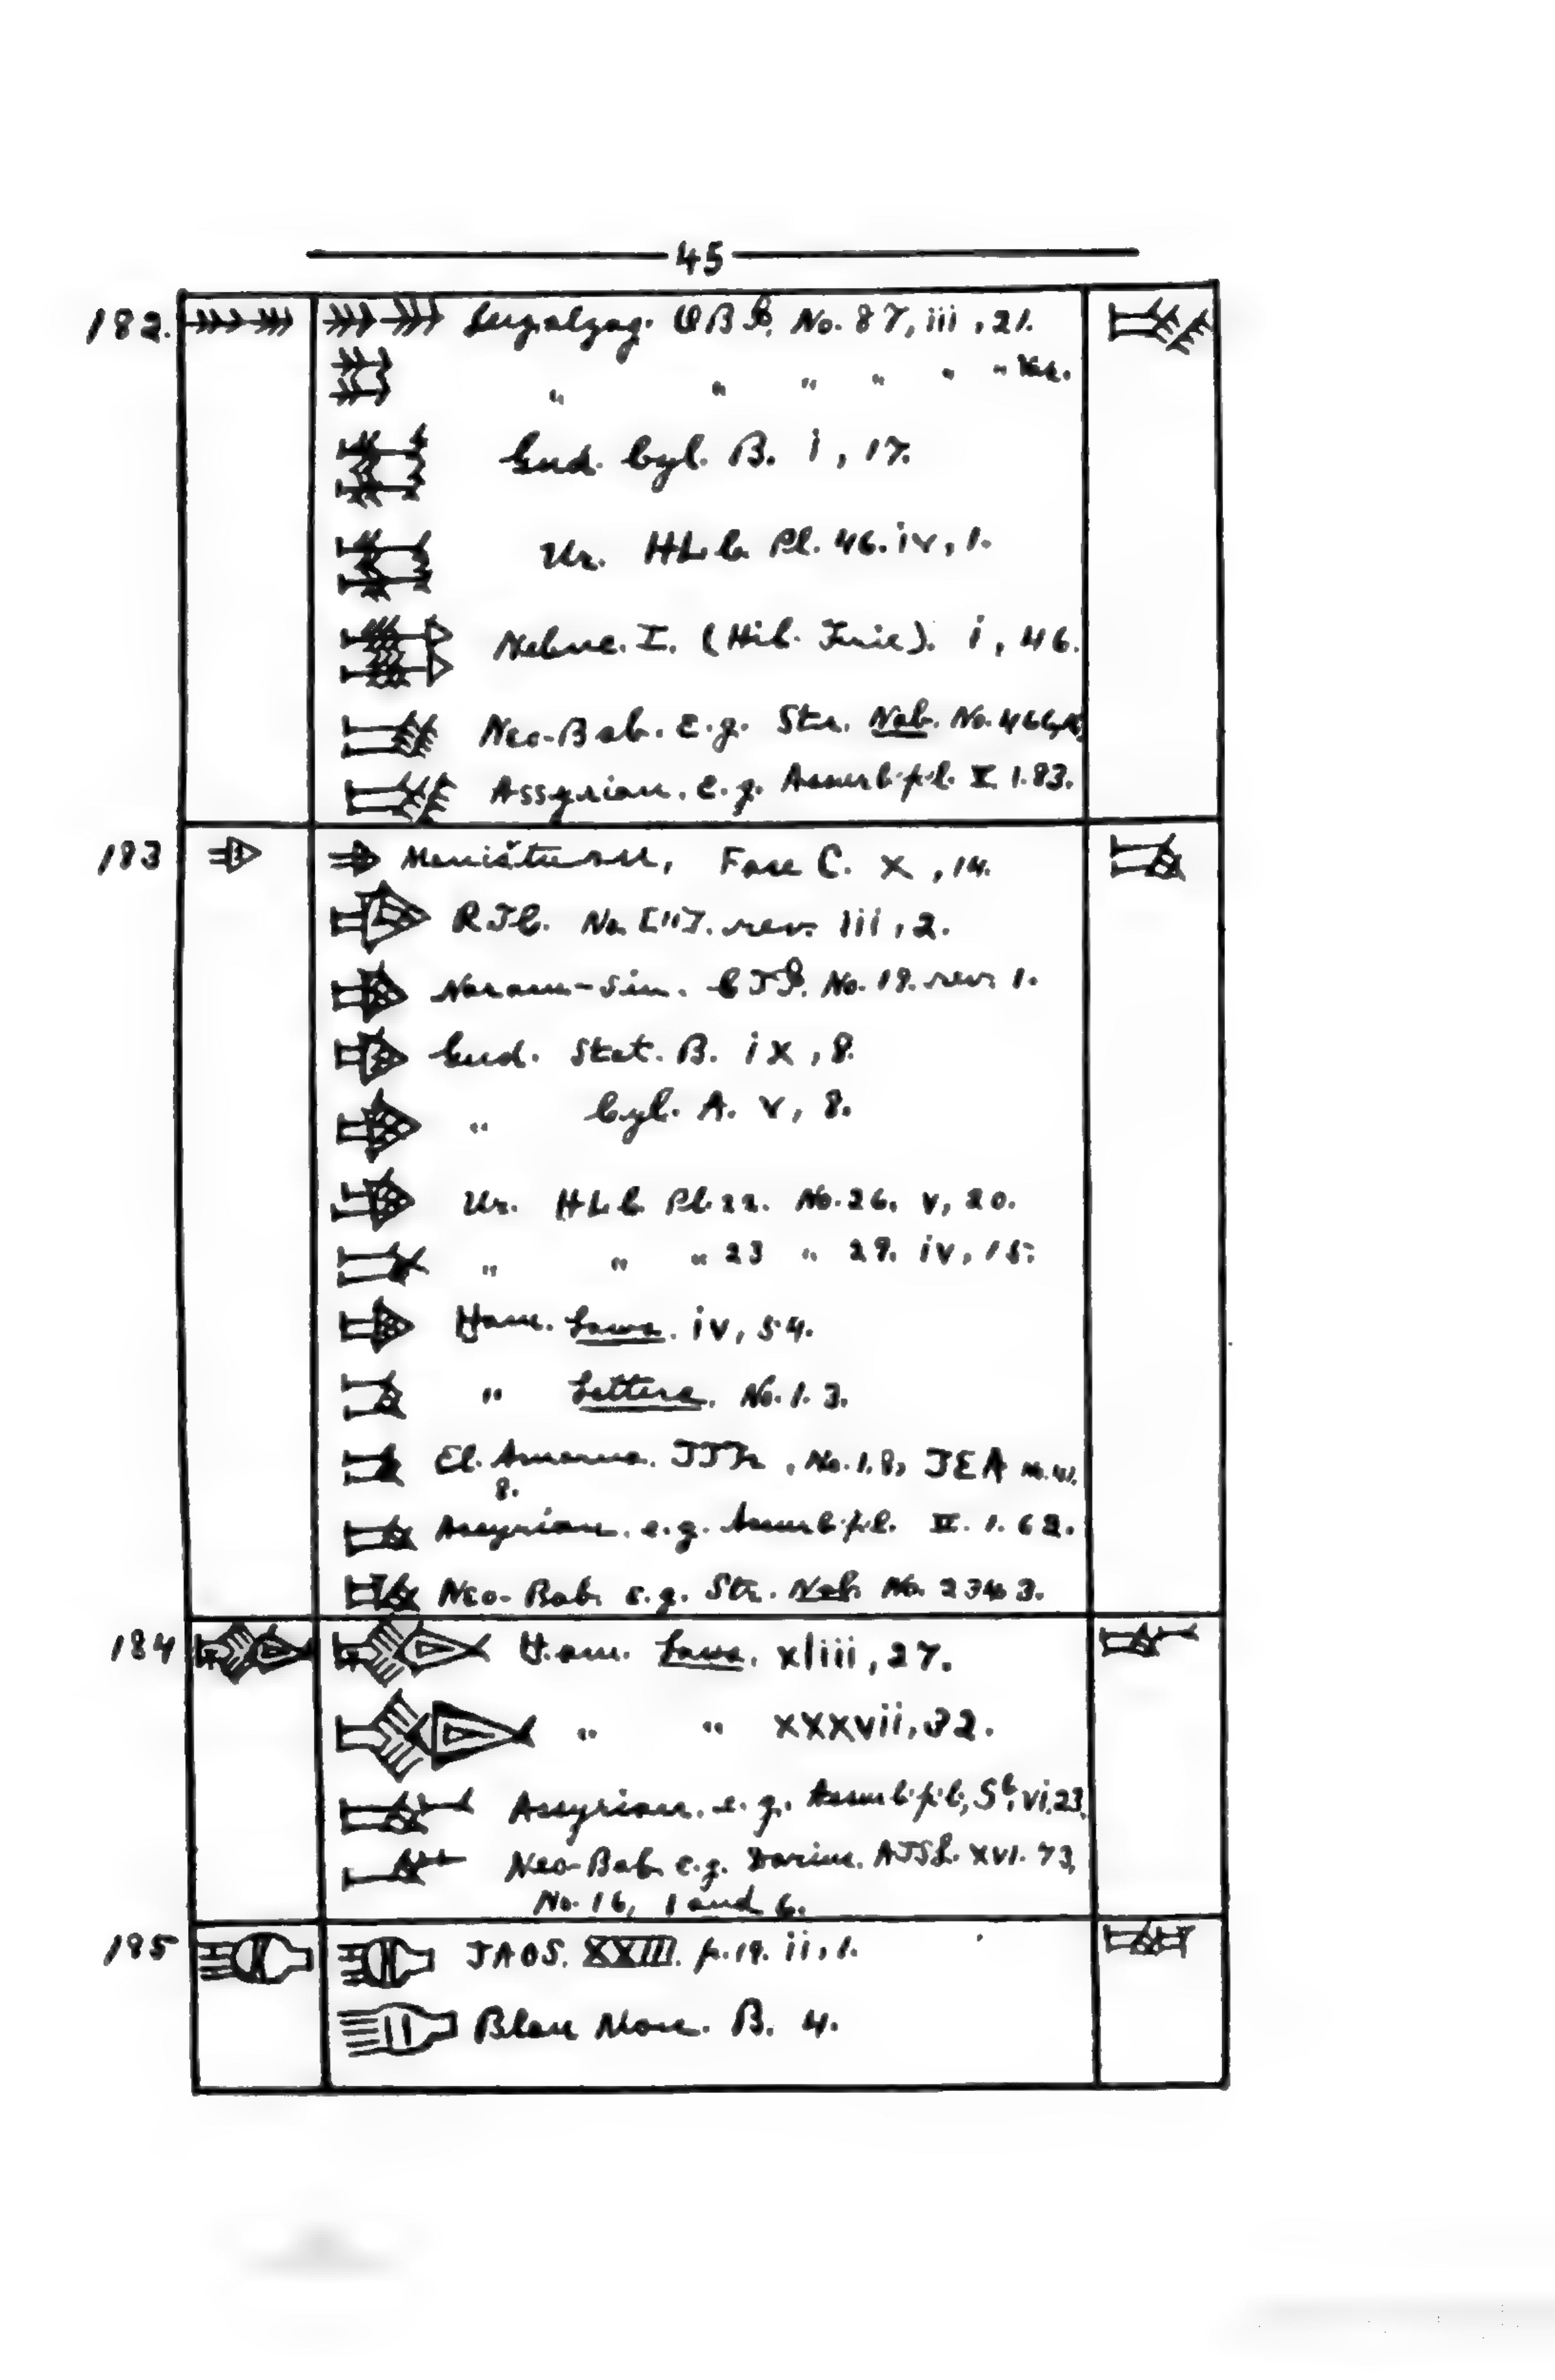 45
182. Lugalzag. OBI, No. 87, iii, 21.
" " " " " " Var.
Gud. Cyl. B. i, 17.
Ur. HLC Pl. 46. iv, 1.
Nebuc. I. (Hil. Frie). i, 46.
Neo-Bab. e.g. Str. Nab. No.
Assyrian. e.g. Assurb·p·l. X 1.83.
183 Maništusu, Face C. x, 14.
RTC. No. [11]. rev. iii, 2.
Naram-Sin. No. 19. rev. 1.
Gud. Stat. B. ix, 8.
" Cyl. A. v, 8.
Ur. HLC Pl. 22. No. 26. v, 20.
" " " 23 " 29. iv, 15.
Ham. Laws. iv, 54.
" Letters. No. 1. 3.
El. Amarna. No. 1, 8,
8.
Assyrian. e.g. Assurb·p·l. II. 1. 62.
Neo-Bab. e.g. Str. Nab. No.
184 Ham. Laws. xliii, 27.
" " xxxvii, 32.
Assyrian. e.g. Assurb·p·l, Sb, vi, 23.
Neo-Bab. e.g. Darius. AJSL. XVI. 73,
No. 16, 1 and 6.
185 JAOS. XXIII. p. 19. ii, 1.
Blau Mon. B. 4.